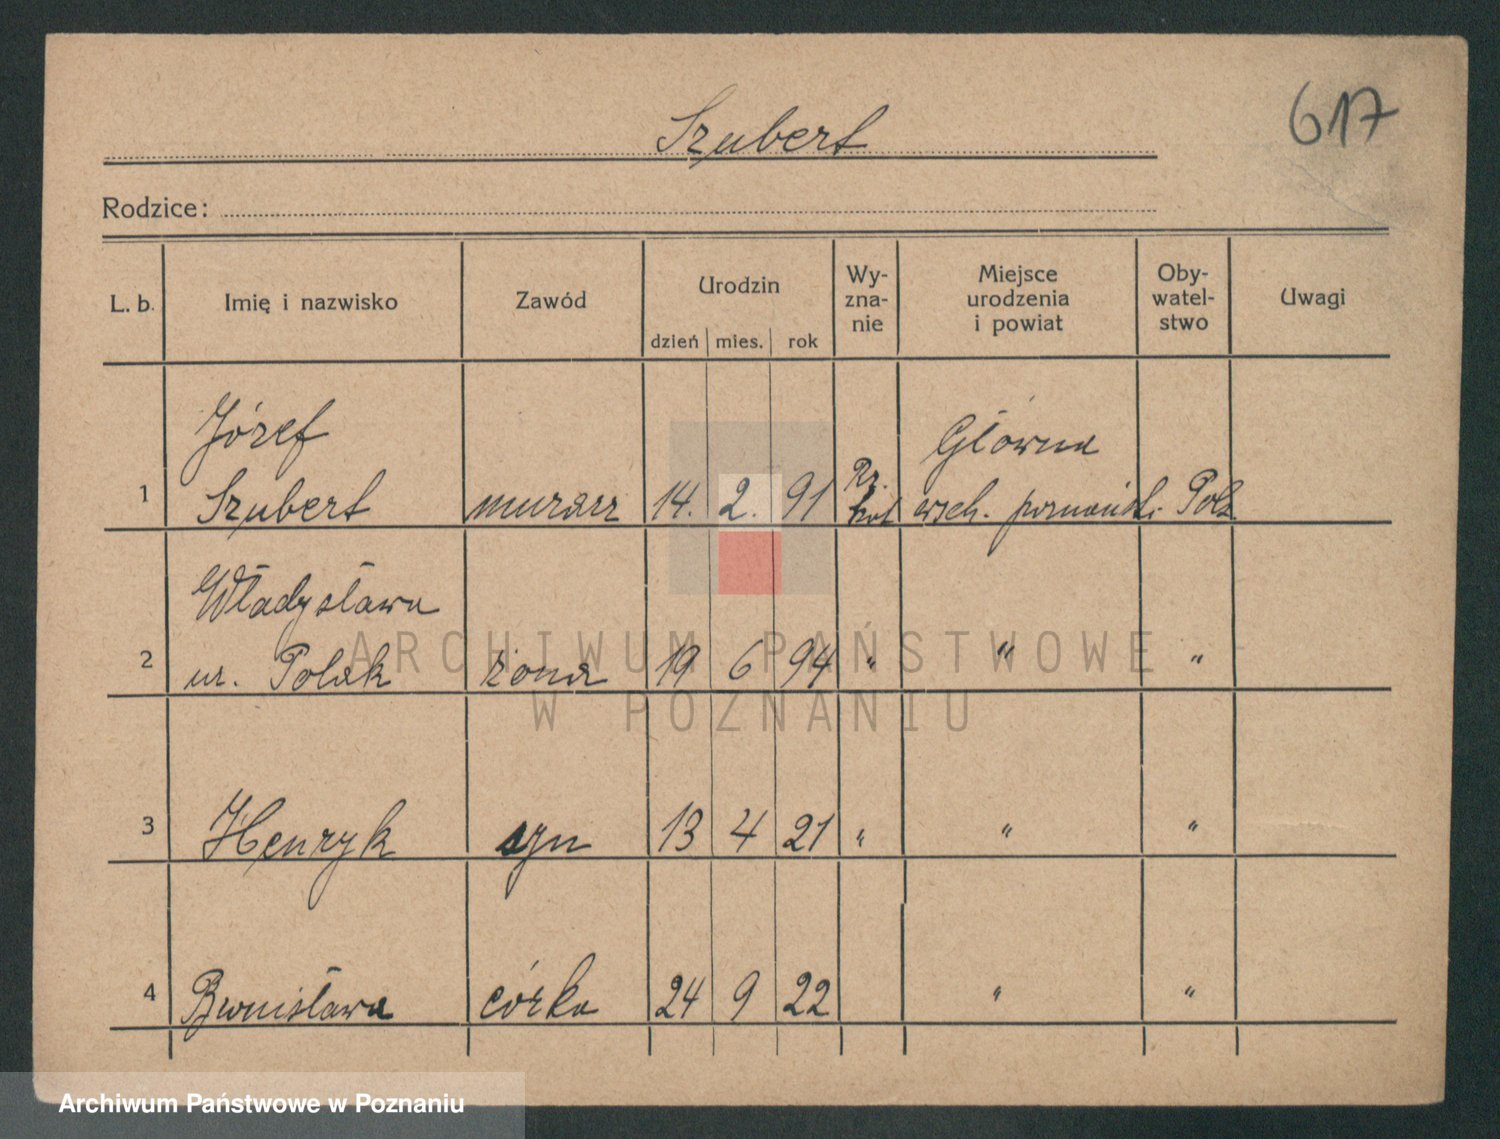 617
Szubert
Rodzice:
L. b. Imię i nazwisko Zawód Urodzin Wy- Miejsce Oby- Uwagi
zna- urodzenia watel-
nie i powiat stwo
dzień mies. rok
Józef Główna
1 Szubert murarz 14. 2. 91 Rz. kat wsch. poznański. Pols
Władysława
2 ur. Polak żona 19 6 94 " " "
3 Henryk syn 13 4 21 " " "
4 Bronisława córka 24 9 22 " "
ARCHIWUM PAŃSTWOWE
W POZNANIU
Archiwum Państwowe w Poznaniu